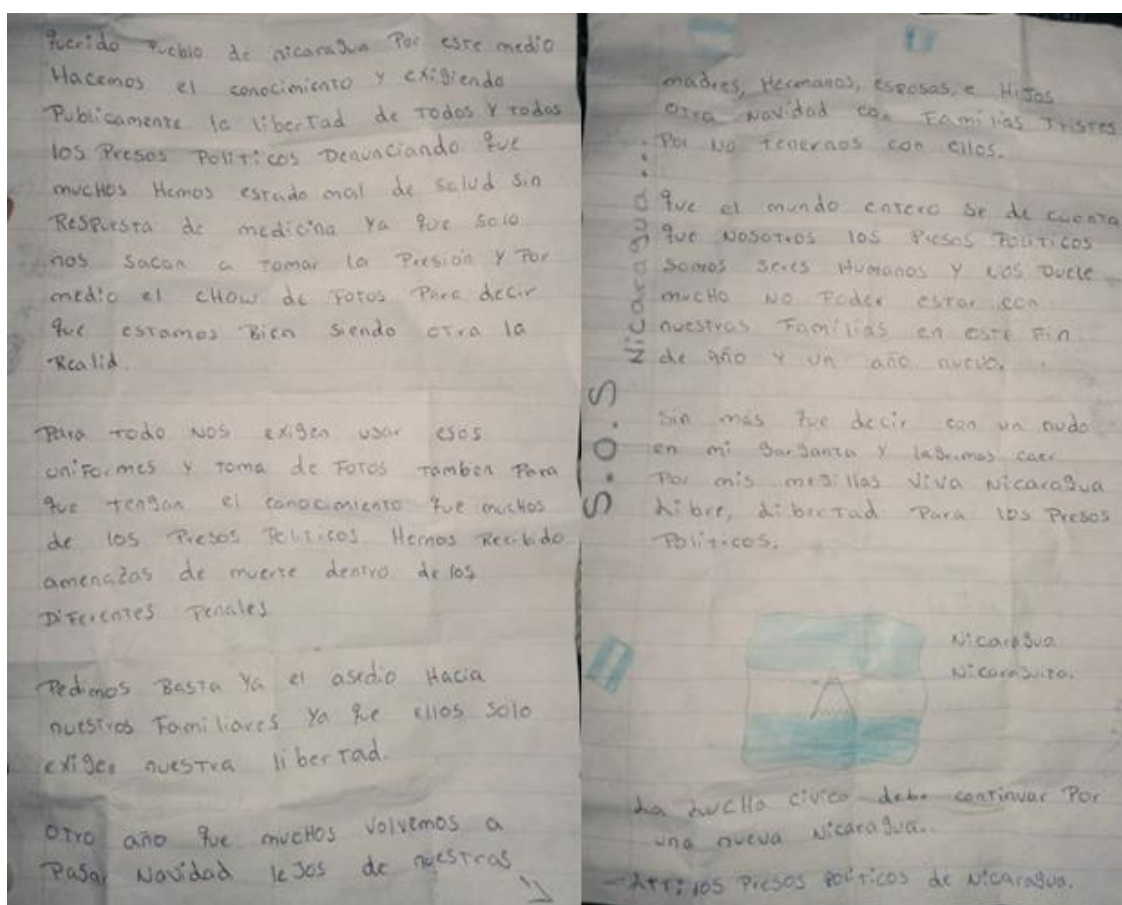 Querido Pueblo de nicaragua Por este medio
Hacemos el conocimiento y exigiendo
Publicamente la libertad de Todos y todas
los Presos Politicos Denunciando que
mucHos Hemos estado mal de Salud sin
Respuesta de medicina Ya que solo
nos Sacan a tomar la Presión y Por
medio el CHow de Fotos Para decir
que estamos Bien siendo otra la
Realid.
Para todo Nos exigen usar esos
uniFormes y toma de Fotos tambien Para
que tengan el conocimiento que mucHos
de los Presos Politicos Hemos Recibido
amenazas de muerte dentro de los
DiFerentes Penales
Pedimos Basta Ya el asedio Hacia
nuestros Familiares Ya que ellos Solo
exigen nuestra libertad.
Otro año que mucHos Volvemos a
Pasar Navidad lejos de nuestras
madres, Hermanos, esposas, e Hijos
Otra Navidad con Familias Tristes
Por No tenernos con ellos.
que el mundo entero se de cuenta
que Nosotros los Presos Politicos
Somos Seres Humanos y Nos Duele
mucHo No Poder estar con
nuestras Familias en este Fin
de año y un año nuevo.
Sin más que decir con un nudo
en mi garganta y lagrimas caer
Por mis mejillas Viva Nicaragua
Libre, Libertad Para los Presos
Politicos.
S.O.S Nicaragua...
Nicaragua
Nicaraguita.
La LucHa civica debe continuar Por
una nueva Nicaragua..
- Att: los Presos Politicos de Nicaragua.